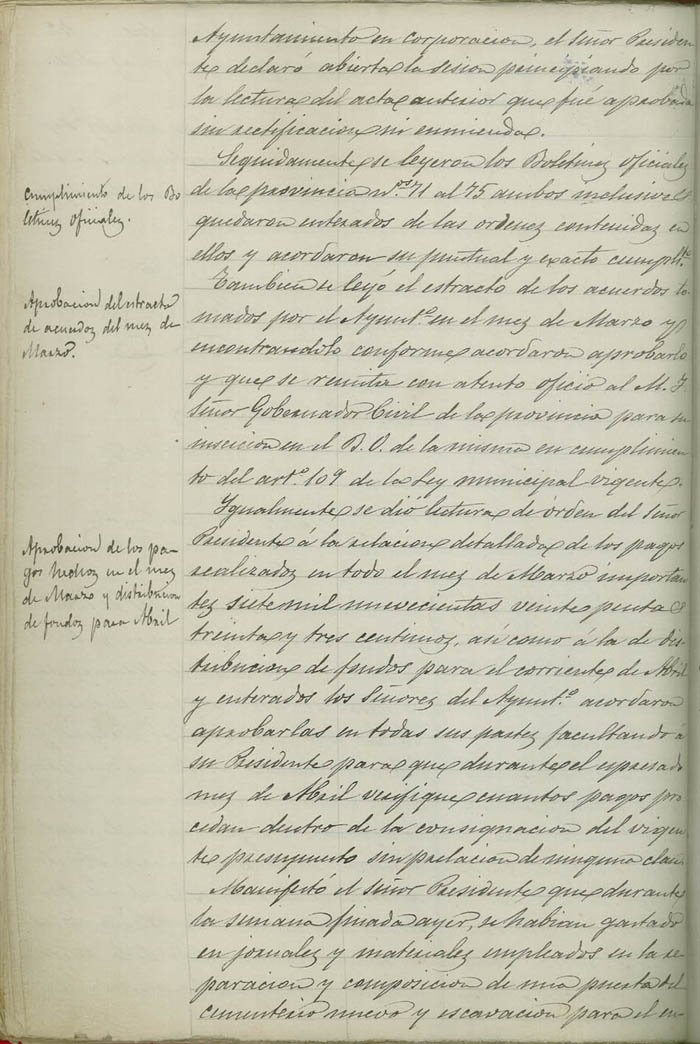 Ayuntamiento en corporacion, el Señor Presiden
te declaró abierta la sesion principiando por
la lectura del acta anterior que fué aprobada
sin rectificacion ni enmienda.
Seguidamente se leyeron los Boletines oficiales
de la provincia nos. 71 al 75 ambos inclusives
quedaron enterados de las ordenes contenidas en
ellos y acordaron su puntual y exacto cumplto.
Tambien se leyó el estracto de los acuerdos to-
mados por el Ayunto. en el mes de Marzo y
encontrandolo conforme acordaron aprobarlo
y que se remita con atento oficio al M. I.
Señor Gobernador Civil de la provincia para su
insercion en el B. O. de la misma en cumplimien
to del arto. 109 de la Ley municipal vigente.
Igualmente se dió lectura de órden del Señor
Presidente á la relacion detallada de los pagos
realizados en todo el mes de Marzo importan
tes siete mil nuevecientas veinte pesetas
treinta y tres centimos, asi como á la de dis-
tribucion de fondos para el corriente de Abril
y enterados los Señores del Ayunto. acordaron
aprobarlas en todas sus partes facultando á
su Presidente para que durante el espresado
mes de Abril verifique cuantos pagos pro
cedan dentro de la consignacion del vigen
te presupuesto sin prelacion de ninguna clase
Manifestó el Señor Presidente que durante
la semana finada ayer, se habian gastado
en jornales y materiales empleados en la re
paracion y composicion de una puerta del
cementerio nuevo y escavacion para el en-
Cumplimiento de los Bo
letines Oficiales.
Aprobacion del estracto
de acuerdos del mes de
Marzo.
Aprobacion de los pa-
gos hechos en el mes
de Marzo y distribucion
de fondos para Abril